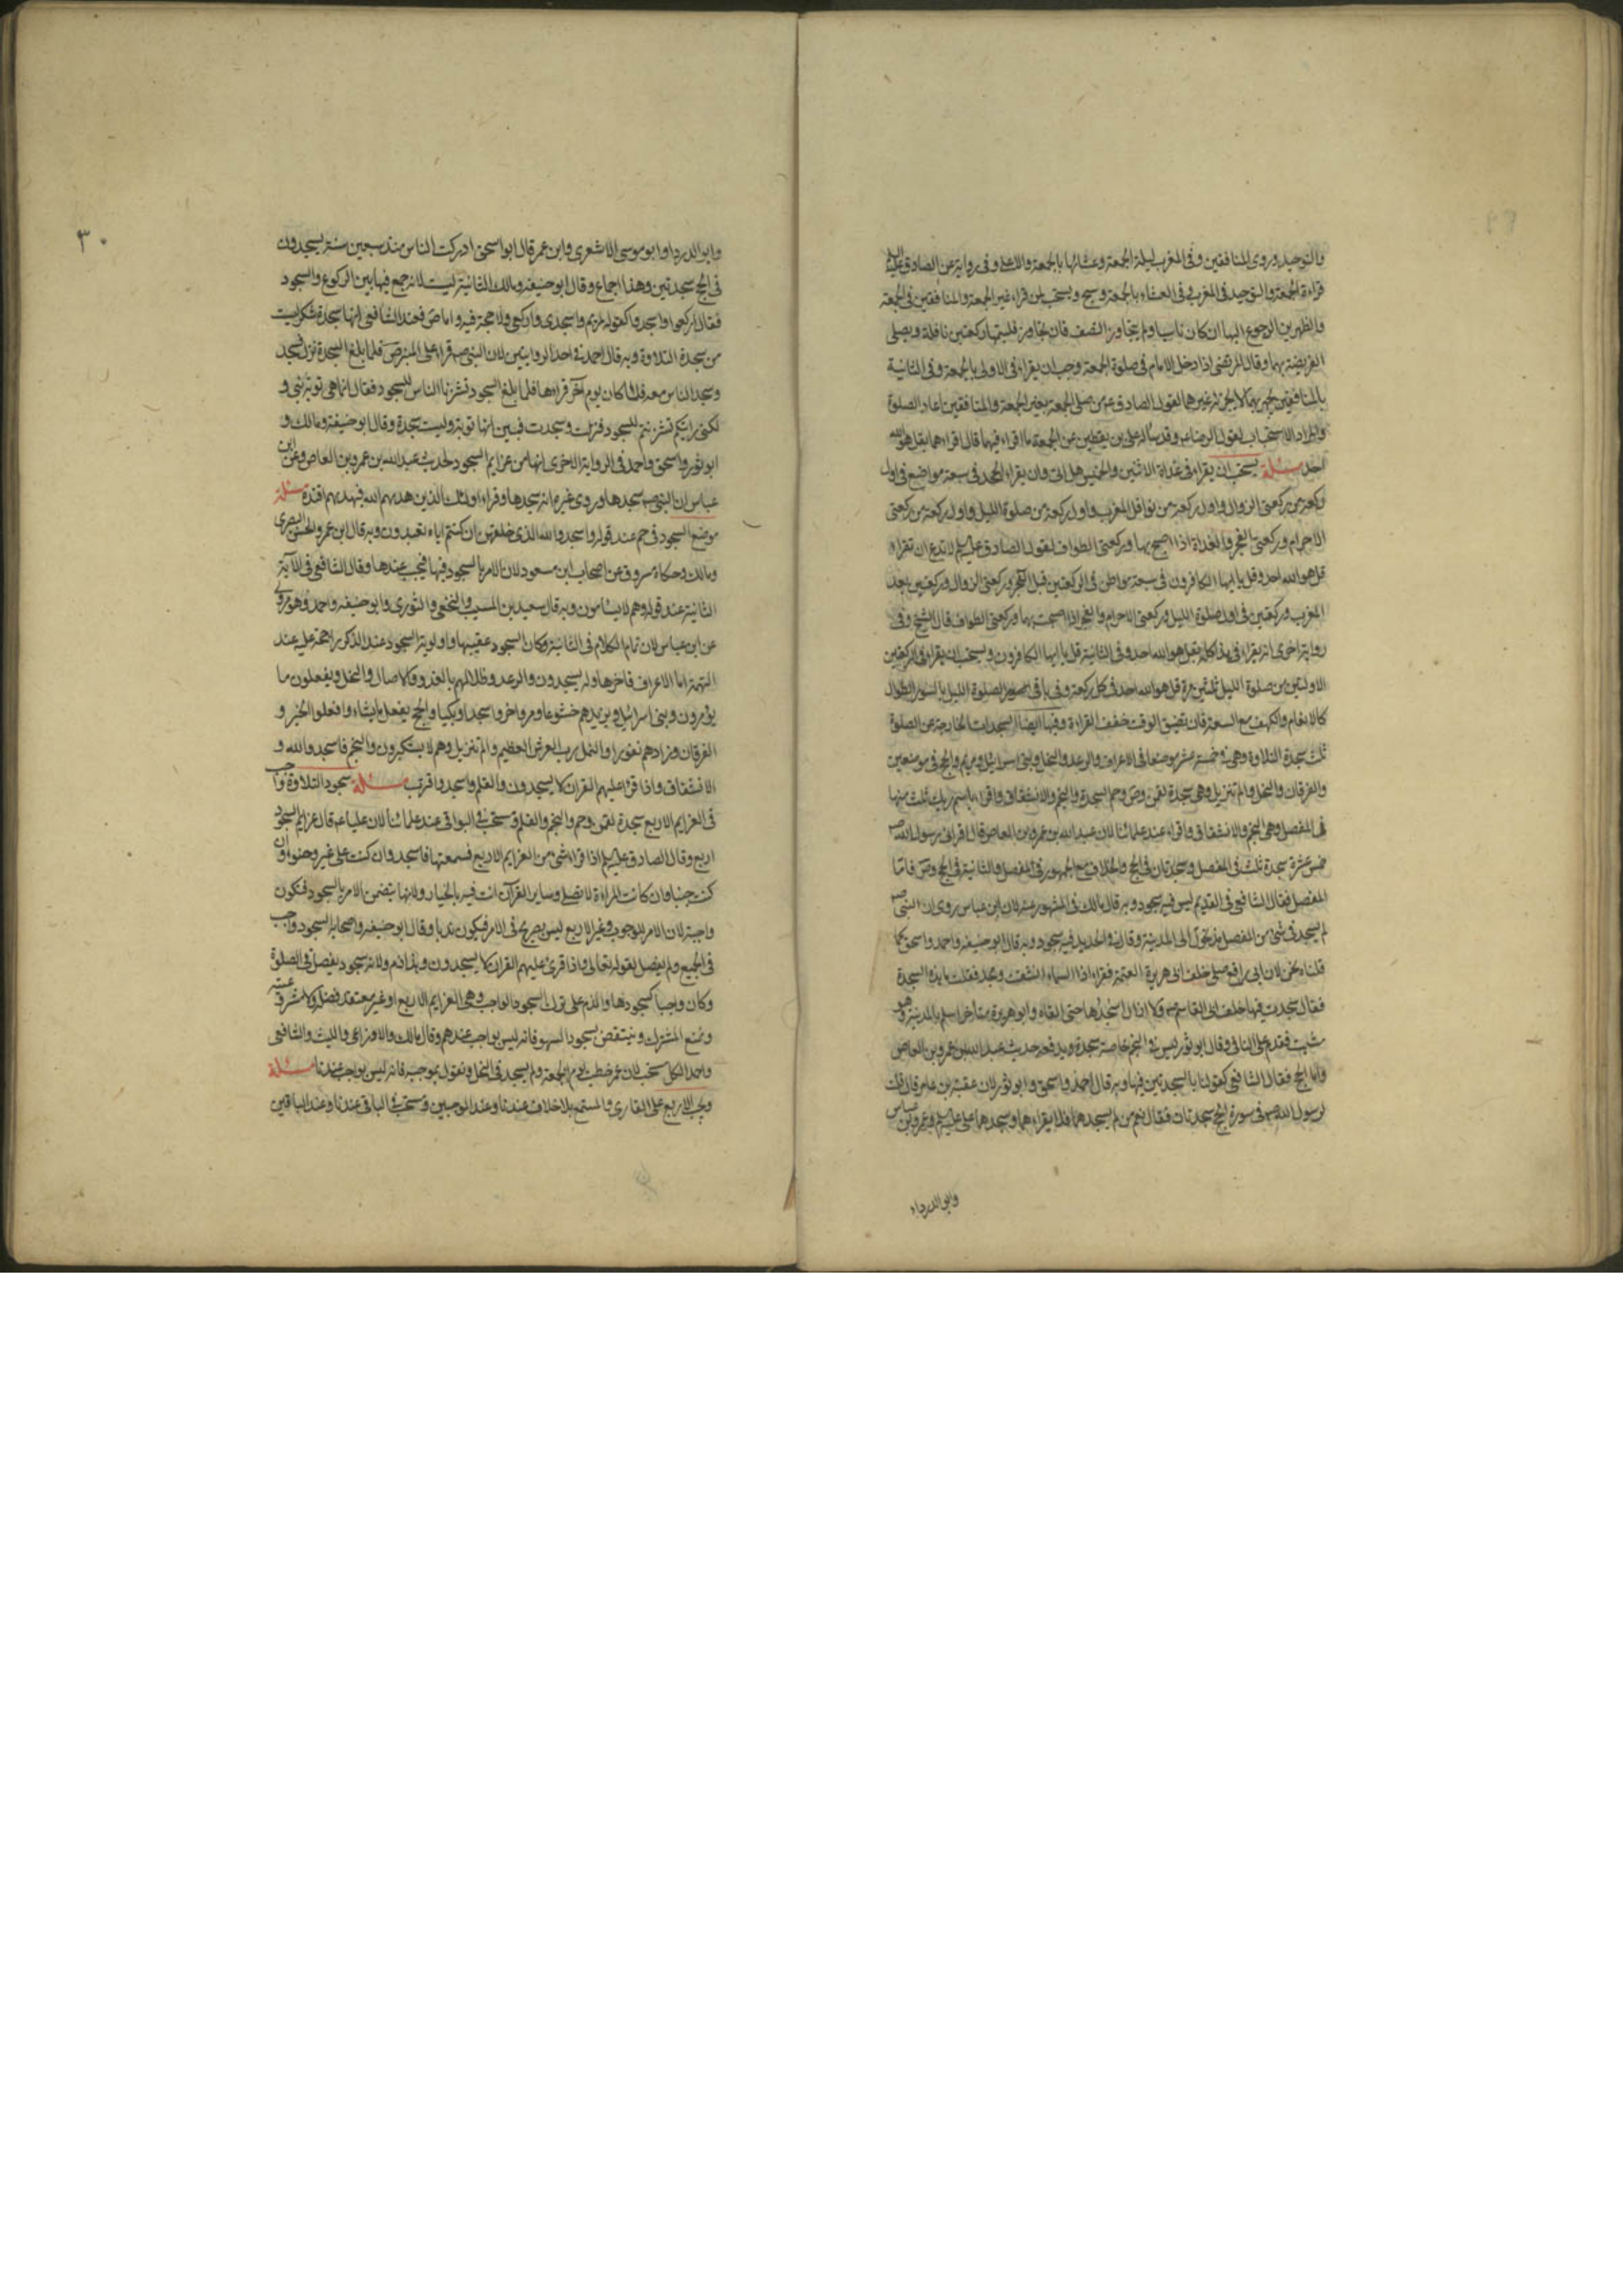 والتوحيد وروى المنافقين وفى المغرب ليلة الجمعة وعشائها بالجمعة والاعلى وفى رواية عن الصادق عليه السلم
قراءة الجمعة والتوحيد فى المغرب وفى العشاء بالجمعة وسبح ويستحب لمن قراء غير الجمعة والمنافقين فى الجمعة
والظهرين الرجوع اليها ان كان ناسيا ولم يتجاوز النصف فان تجاوز فليتمها ركعتين نافلة ويصلى
الفريضة بهما وقال المرتضى اذا دخل الامام فى صلوة الجمعة وجب ان يقراء فى الاولى بالجمعة وفى الثانية
بالمنافقين يجهر بهما لا يجزئه غيرهما لقول الصادق ع من صلى الجمعة بغير الجمعة والمنافقين اعاد الصلوة
والمراد الاستحباب لقول الرضا ع وقد ساله على بن يقطين عن الجمعة ما اقراء فيهما قال اقراءهما بقل هو الله
احد مسئلة يستحب ان يقراء فى غداة الاثنين والخميس هل اتى وان يقراء الحمد فى سبعة مواضع فى اول
ركعة من ركعتى الزوال واول ركعة من نوافل المغرب واول ركعة من صلوة الليل واول ركعة من ركعتى
الاحرام وركعتى الفجر والغداة اذا اصبح بها وركعتى الطواف لقول الصادق عليه السلم لا تدع ان تقراء
قل هو الله احد وقل يا ايها الكافرون فى سبعة مواطن فى الركعتين قبل الفجر وركعتى الزوال وركعتين بعد
المغرب وركعتين فى اول صلوة الليل وركعتى الاحرام والفجر اذا اصبحت بها وركعتى الطواف قال الشيخ وفى
رواية اخرى انه يقراء فى هذا كله بقل هو الله احد وفى الثانية قل يا ايها الكافرون ويستحب ان يقراء فى الركعتين
الاولتين من صلوة الليل ثلثين مرة قل هو الله احد فى كل ركعة وفى باقى صلوة الليل بالسور الطوال
كالانعام والكهف مع السعة فان تضيق الوقت خفف القراءة وفيها ايضا السجدات الخارجة عن الصلوة
ثلث سجدة التلاوة وهى فى خمسة عشر موضعا فى الاعراف والرعد والنحل وبنى اسرائيل ومريم والحج فى موضعين
والفرقان والنمل والم تنزيل وهى سجدة لقمن وص وحم السجدة والنجم والانشقاق واقراء باسم ربك ثلث منها
فى المفصل وهى النجم والانشقاق واقراء عند علمائنا لان عبد الله بن عمرو بن العاص قال اقرانى رسول الله ص
خمس عشرة سجدة ثلث فى المفصل وسجدتان فى الحج والخلاف مع الجمهور فى المفصل والثانية فى الحج وص فاما
المفصل فقال الشافعى فى القديم ليس فيه سجود وبه قال مالك فى المشهور عنه لان ابن عباس روى ان النبى ص
لم يسجد فى شئ من المفصل منذ تحول الى المدينة وقال فى الجديد فيه سجود وبه قال ابو حنيفه واحمد واسحق كما
قلناه نحن لان ابى رافع صلى خلف ابى هريرة العتمة فقراء اذا السماء انشقت وسجد فقلت ما هذه السجدة
فقال سجدت فيها خلف ابى القاسم ص ولا ازال اسجدها حتى القاه وابو هريرة متاخر اسلم بالمدينة وهو
مثبت فقدم على النافى وقال ابو ثور ليس فى النجم خاصة سجدة ويدفعه حديث عبد الله بن عمرو بن العاص
واما الحج فقال الشافعى كقولنا بالسجدتين فيها وبه قال احمد واسحق وابو ثور لان عقبة بن عامر قال قلت
لرسول الله ص فى سورة الحج سجدتان فقال نعم من لم يسجدهما فلا يقراءهما وسجدهما على عليه السلم وعمر وابن عباس
وابو الدرداء
٣٠
وابو الدرداء وابو موسى الاشعرى وابن عمر قال ابو اسحق ادركت الناس منذ سبعين سنة يسجدون
فى الحج سجدتين وهذا اجماع وقال ابو حنيفه ومالك الثانية ليست لانه جمع فيها بين الركوع والسجود
فقال اركعوا واسجدوا كقوله مريم واسجدى واركعى ولا حجة فيه واما ص فعند الشافعى انها سجدة شكر ليست
من سجدة التلاوة وبه قال احمد فى احد الروايتين لان النبى ص قراء على المنبر ص فلما بلغ السجدة نزل فسجد
وسجد الناس معه فلما كان يوم آخر قراءها فلما بلغ السجود تشزنها الناس للسجود فقال انما هى توبة نبى و
لكنى رايتكم تشزنتم للسجود فنزلت وسجدت فبين انها توبة وليست سجدة وقال ابو حنيفه ومالك و
ابو ثور واسحق واحمد فى الرواية الاخرى انها من عزايم السجود لحديث عبد الله بن عمرو بن العاص وعن ابن
عباس ان النبى ص سجدها وروى غيره انه سجدها وقراء اولئك الذين هديهم الله فبهديهم اقتده مسئلة
موضع السجود فى حم عند قوله واسجدوا لله الذى خلقهن ان كنتم اياه تعبدون وبه قال ابن عمر والحسن البصرى
ومالك وحكاه مسروق عن اصحاب ابن مسعود لان الامر بالسجود فيها فيجب عندها وقال الشافعى فى الآية
الثانية عند قوله وهم لا يسامون وبه قال سعيد بن المسيب والنخعى والثورى وابو حنيفه واحمد وهو مروى
عن ابن عباس لان تمام الكلام فى الثانية وكان السجود عقيبها واولوية السجود عند الذكر راجحة عليه عند
التتمة اما الاعراف فاخرها وله يسجدون والرعد وظلالهم بالغدو والاصال والنحل ويفعلون ما
يؤمرون وبنى اسرائيل ويزيدهم خشوعا ومريم وخروا سجدا وبكيا والحج يفعل ما يشاء وافعلوا الخير و
الفرقان وزادهم نفورا والنمل رب العرش العظيم والم تنزيل وهم لا يستكبرون والنجم فاسجدوا لله و
الانشقاق واذا قرئ عليهم القران لا يسجدون والقلم واسجد واقترب مسئلة سجود التلاوة واجب
فى العزايم الاربع سجدة لقمن وحم والنجم والقلم ومستحب فى البواقى عند علمائنا لان عليا ع قال عزايم السجود
اربع وقال الصادق عليه السلم اذا قراء شئ من العزايم الاربع فسمعتها فاسجد وان كنت على غير وضوء وان
كنت جنبا وان كانت المراءة لا تصلى وساير القرآن انت فيه بالخيار ولانها يتضمن الامر بالسجود فتكون
واجبة لان الامر للوجوب وغير الاربع ليس بصريح فى الامر فيكون ندبا وقال ابو حنيفه واصحابه السجود واجب
فى الجميع ولم يفصل لقوله تعالى واذا قرئ عليهم القران لا يسجدون وهذا ذم ولانه سجود يفعل فى الصلوة
وكان واجبا كسجودها والذم على ترك السجود الواجب وهى العزايم الاربع او غير معتقد فضله ولا مشروعيته
ونمنع المشترك وينتقض بسجود السهو فانه ليس بواجب عندهم وقال مالك والاوزاعى والليث والشافعى
واحمد الكل مستحب لان عمر خطب يوم الجمعة ولم يسجد فى النحل ونقول بموجبه فانه ليس بواجب عندنا مسئلة
ويجب الاربع على القارى والمستمع بلا خلاف عندنا وعند الموجبين ويستحب فى الباقى عندنا وعند الباقين